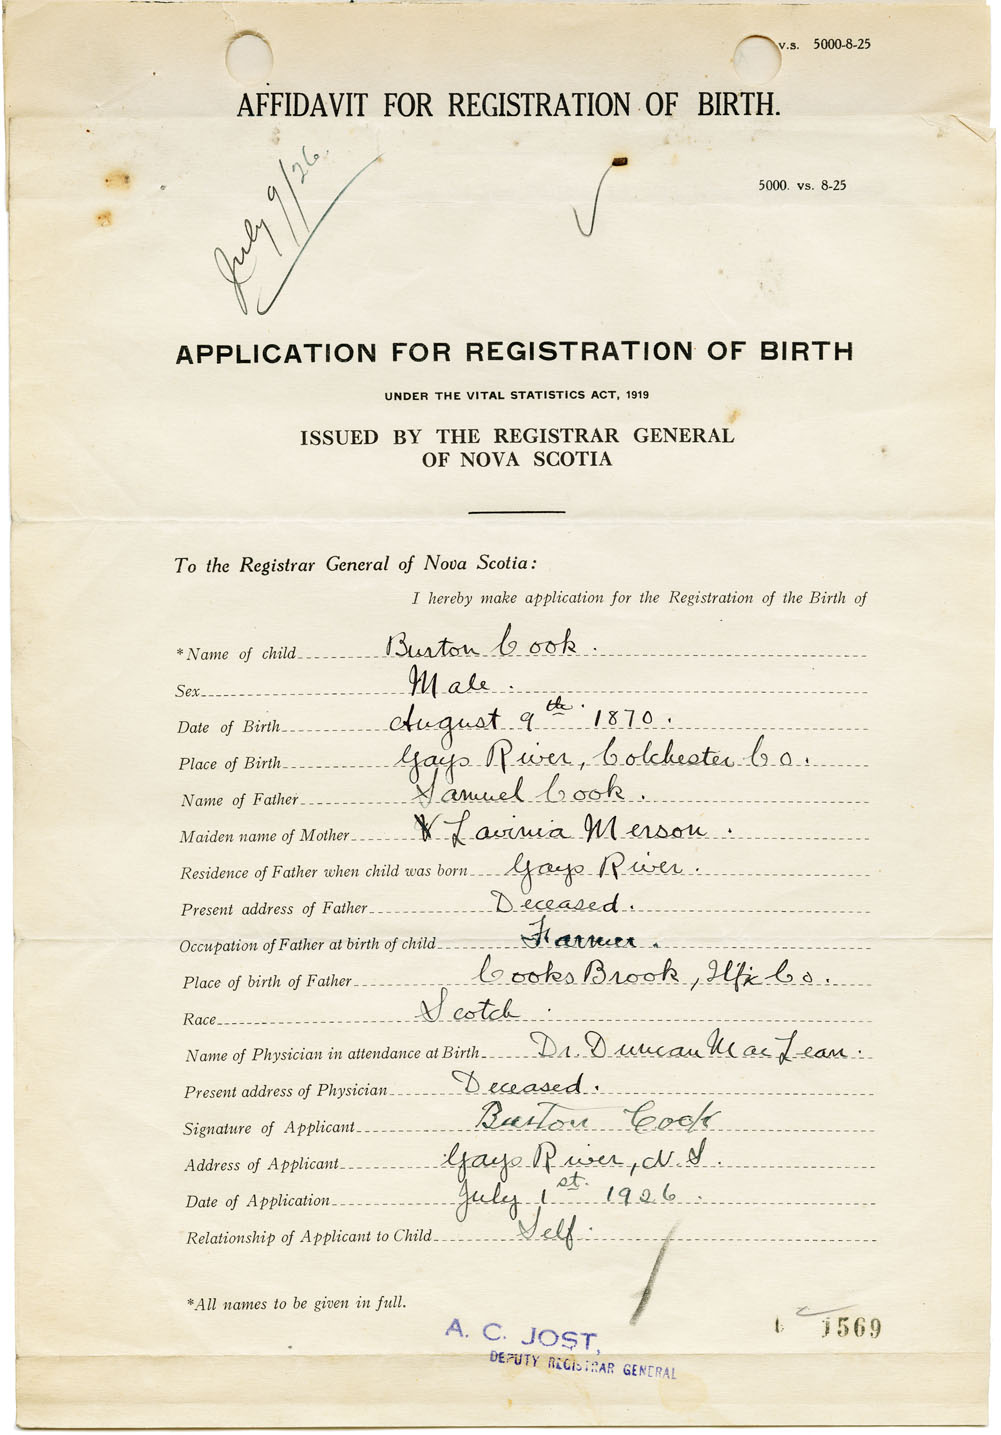 v.s. 5000-8-25
AFFIDAVIT FOR REGISTRATION OF BIRTH.
July 9/26
5000. vs. 8-25
APPLICATION FOR REGISTRATION OF BIRTH
UNDER THE VITAL STATISTICS ACT, 1919
ISSUED BY THE REGISTRAR GENERAL
OF NOVA SCOTIA
To the Registrar General of Nova Scotia:
I hereby make application for the Registration of the Birth of
*Name of child Burton Cook.
Sex Male.
Date of Birth August 9th. 1870.
Place of Birth Gays River, Colchester Co.
Name of Father Samuel Cook.
Maiden name of Mother Lavinia Merson.
Residence of Father when child was born Gays River.
Present address of Father Deceased.
Occupation of Father at birth of child Farmer.
Place of birth of Father Cooks Brook, Hfx Co.
Race Scotch.
Name of Physician in attendance at Birth Dr. Duncan MacLean.
Present address of Physician Deceased.
Signature of Applicant Burton Cook
Address of Applicant Gays River, N.S.
Date of Application July 1st. 1926.
Relationship of Applicant to Child Self.
*All names to be given in full.
1569
A. C. JOST,
DEPUTY REGISTRAR GENERAL